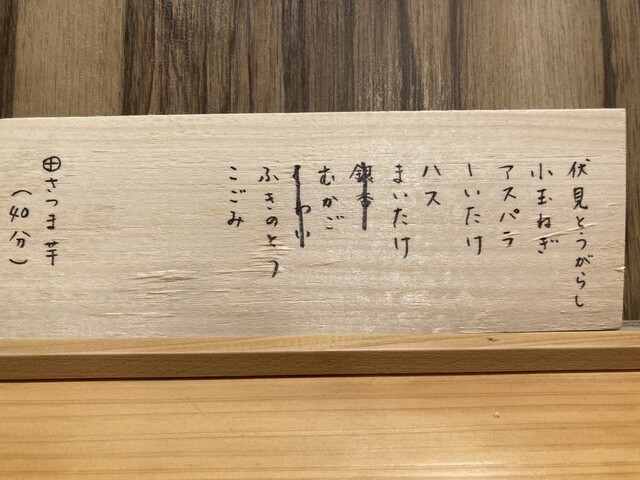 伏見とうがらし
小玉ねぎ
アスパラ
しいたけ
ハス
まいたけ
銀杏
むかご
くわい
ふきのとう
こごみ
㊉さつま芋
(40分)